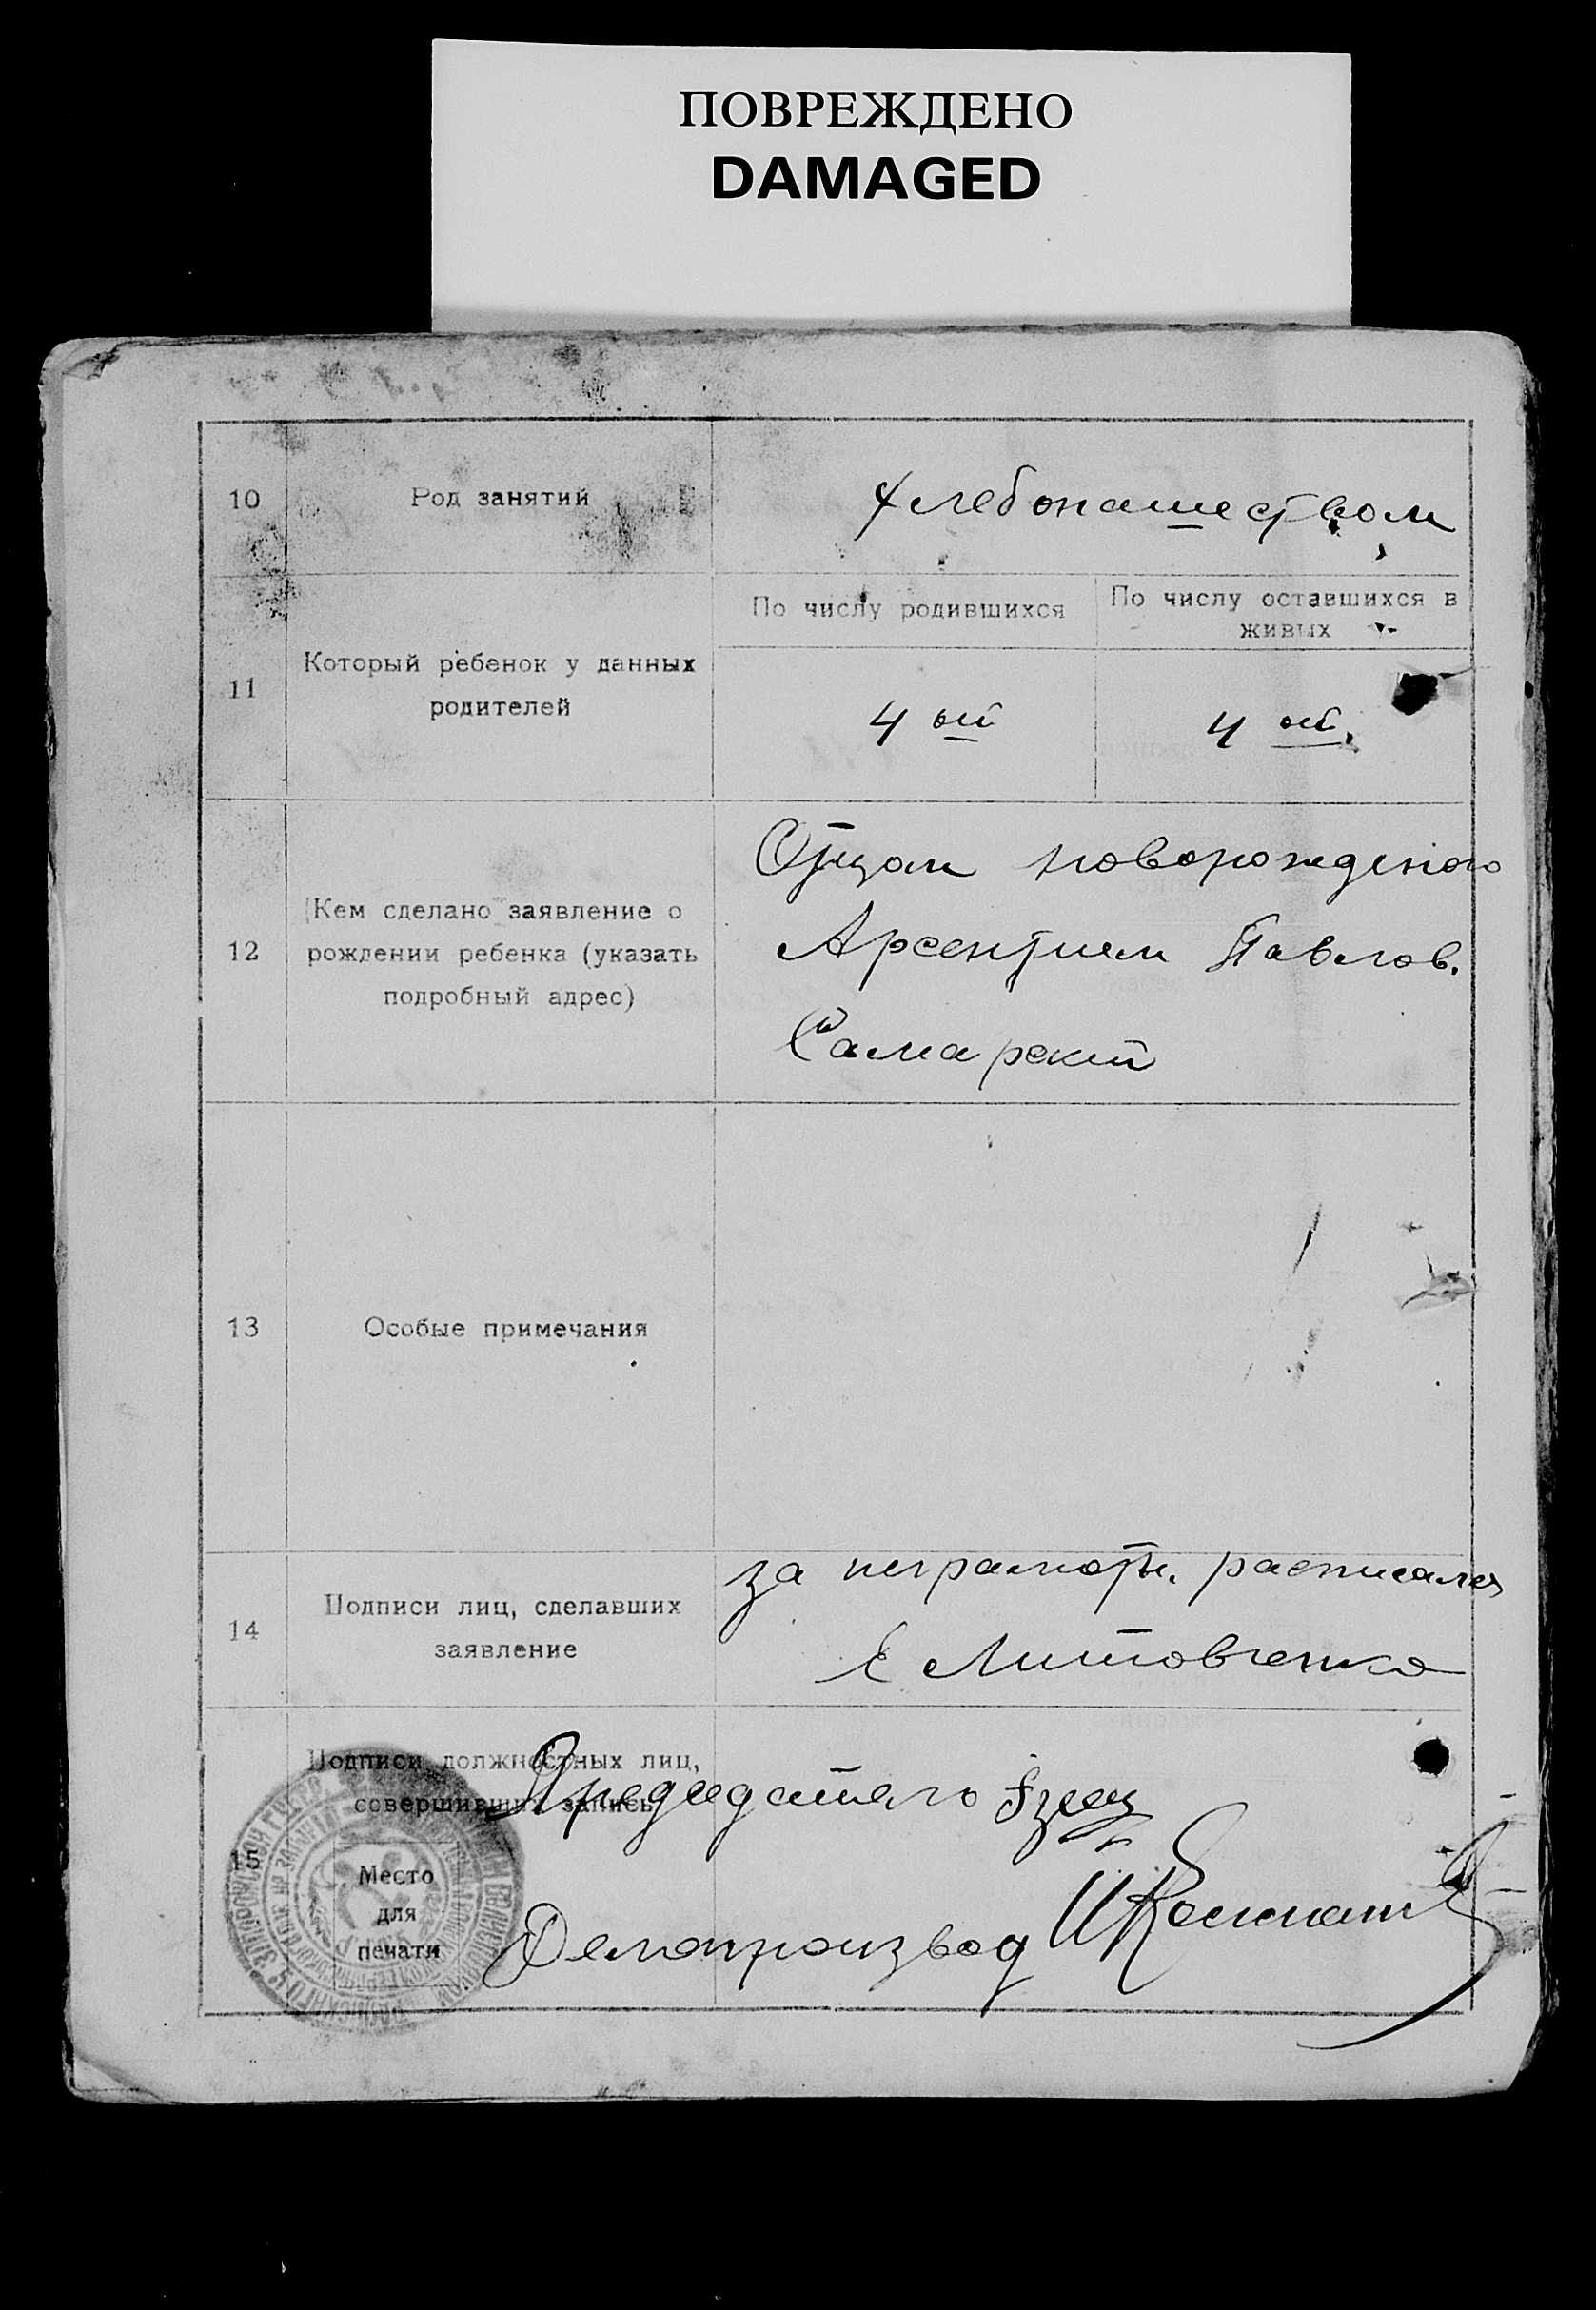 ПОВРЕЖДЕНО
DAMAGED
10
Род занятий
Хлебопашеством
11
Который ребенок у данных
родителей
По числу родившихся
По числу оставшихся в
живых
4 ый
4 ый.
12
Кем сделано заявление о
рождении ребенка (указать
подробный адрес)
Отцом новорожденого
Арсентием Павлов.
Самарский
13
Особые примечания
14
Подписи лиц, сделавших
заявление
за неграмотн. расписался
Е Литовченко
15
Подписи должностных лиц,
совершивших запись
Место
для
печати
Делопроизвод